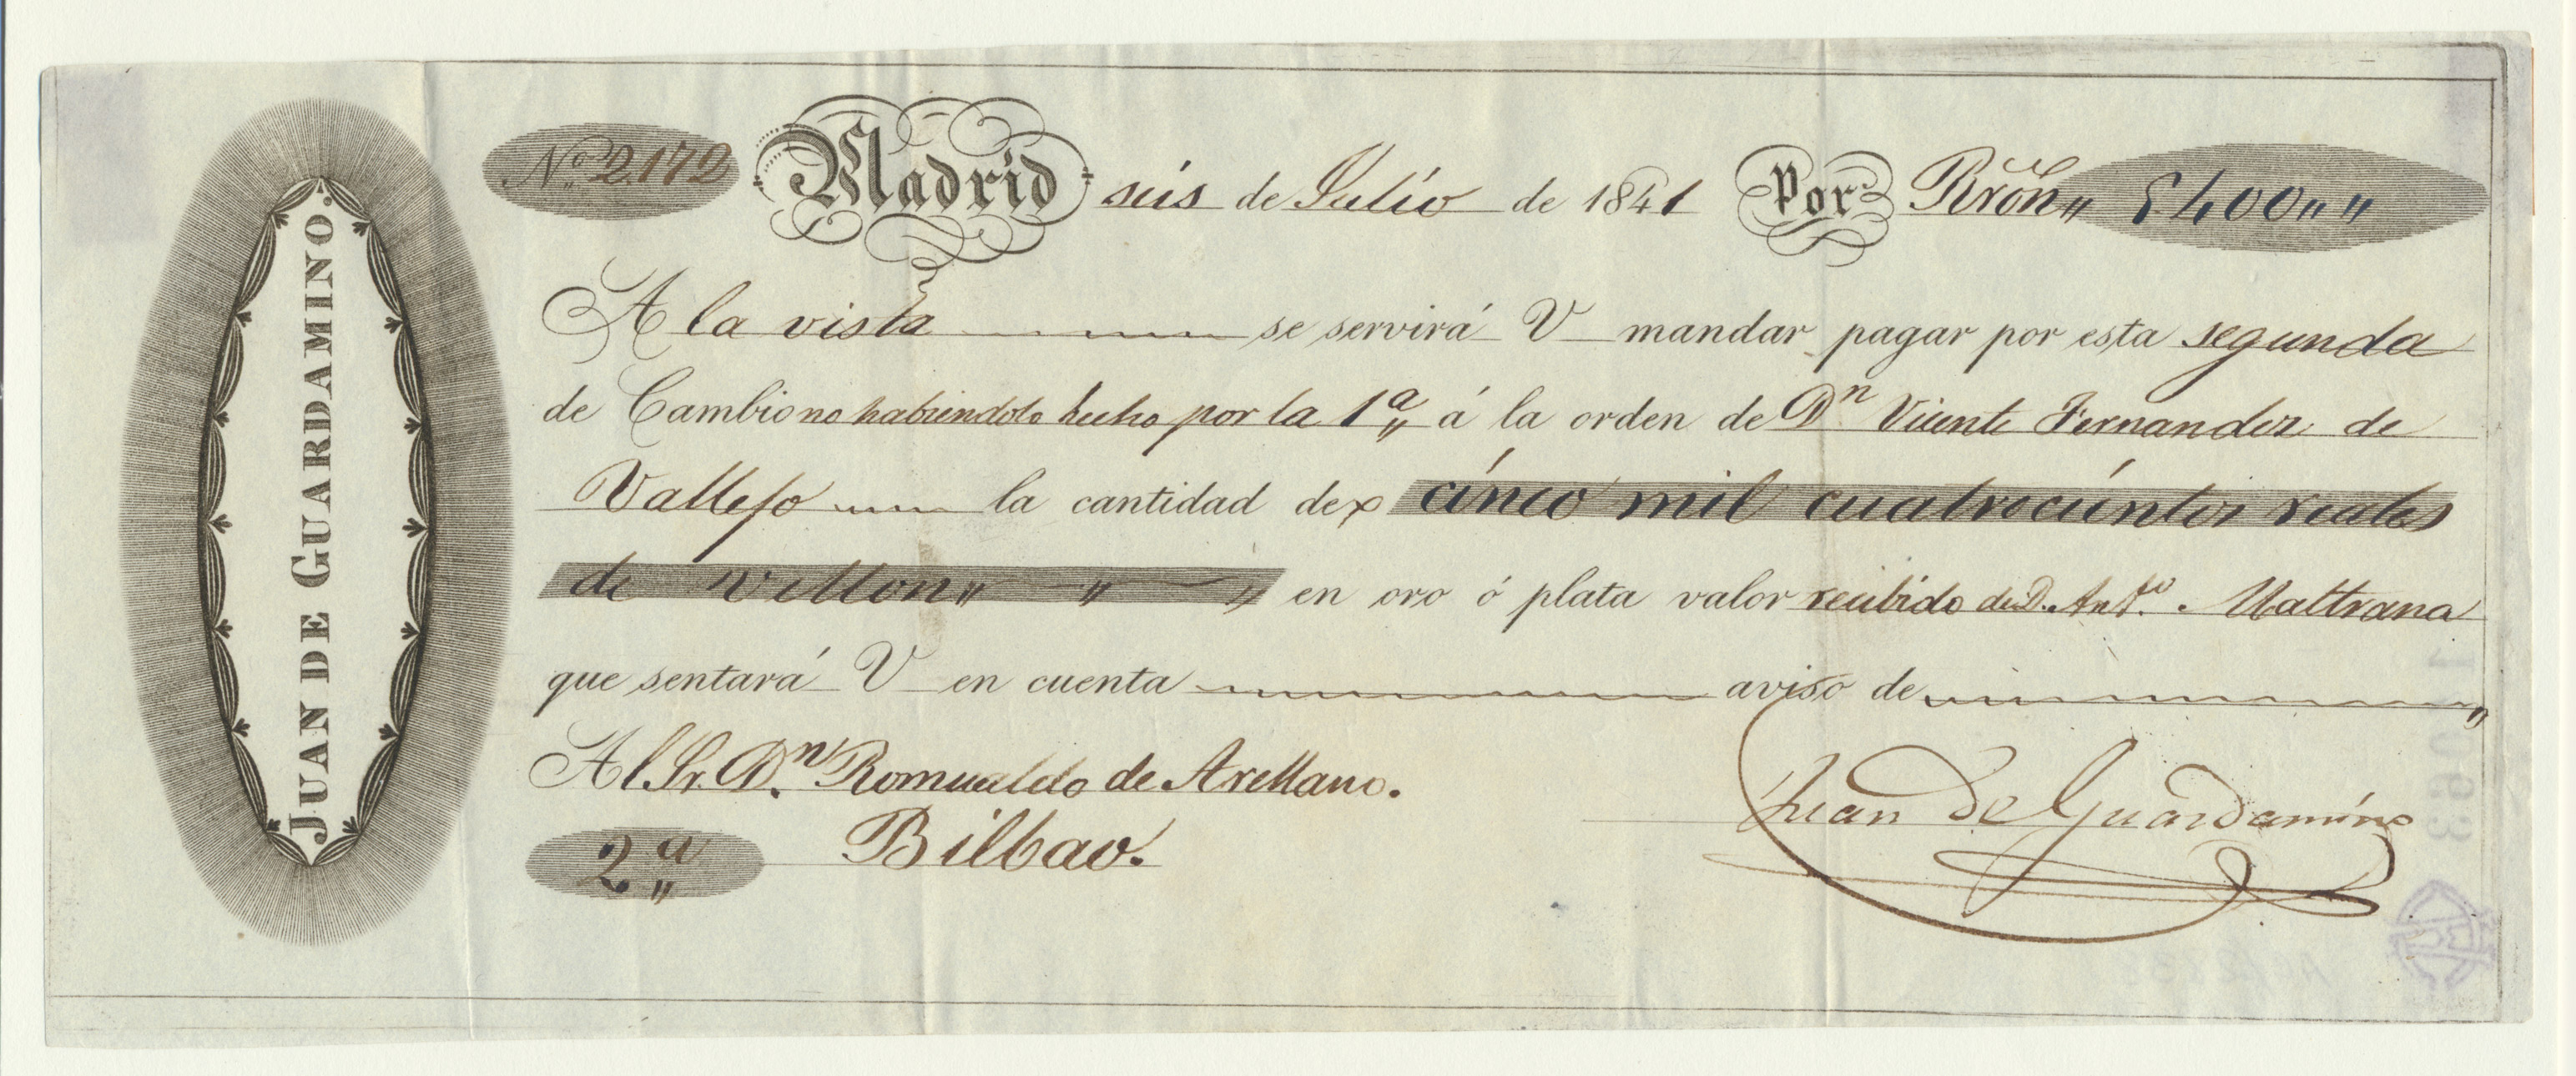 JUAN DE GUARDAMINO.
Nº 2172 Madrid seis de Julio de 1841 Por Rvon„ 5400„„
A la vista se servirá V mandar pagar por esta segunda
de Cambio no habiendolo hecho por la 1ª„ á la orden de Dn Vicente Fernandez de
Vallejo la cantidad de cinco mil cuatrocientos reales
de vellon„ „ en oro ó plata valor recibido de D. Anto. Maltrana
que sentará V en cuenta aviso de
Al Sr. Dn. Romualdo de Arellano.
2ª„ Bilbao.
Juan de Guardamino